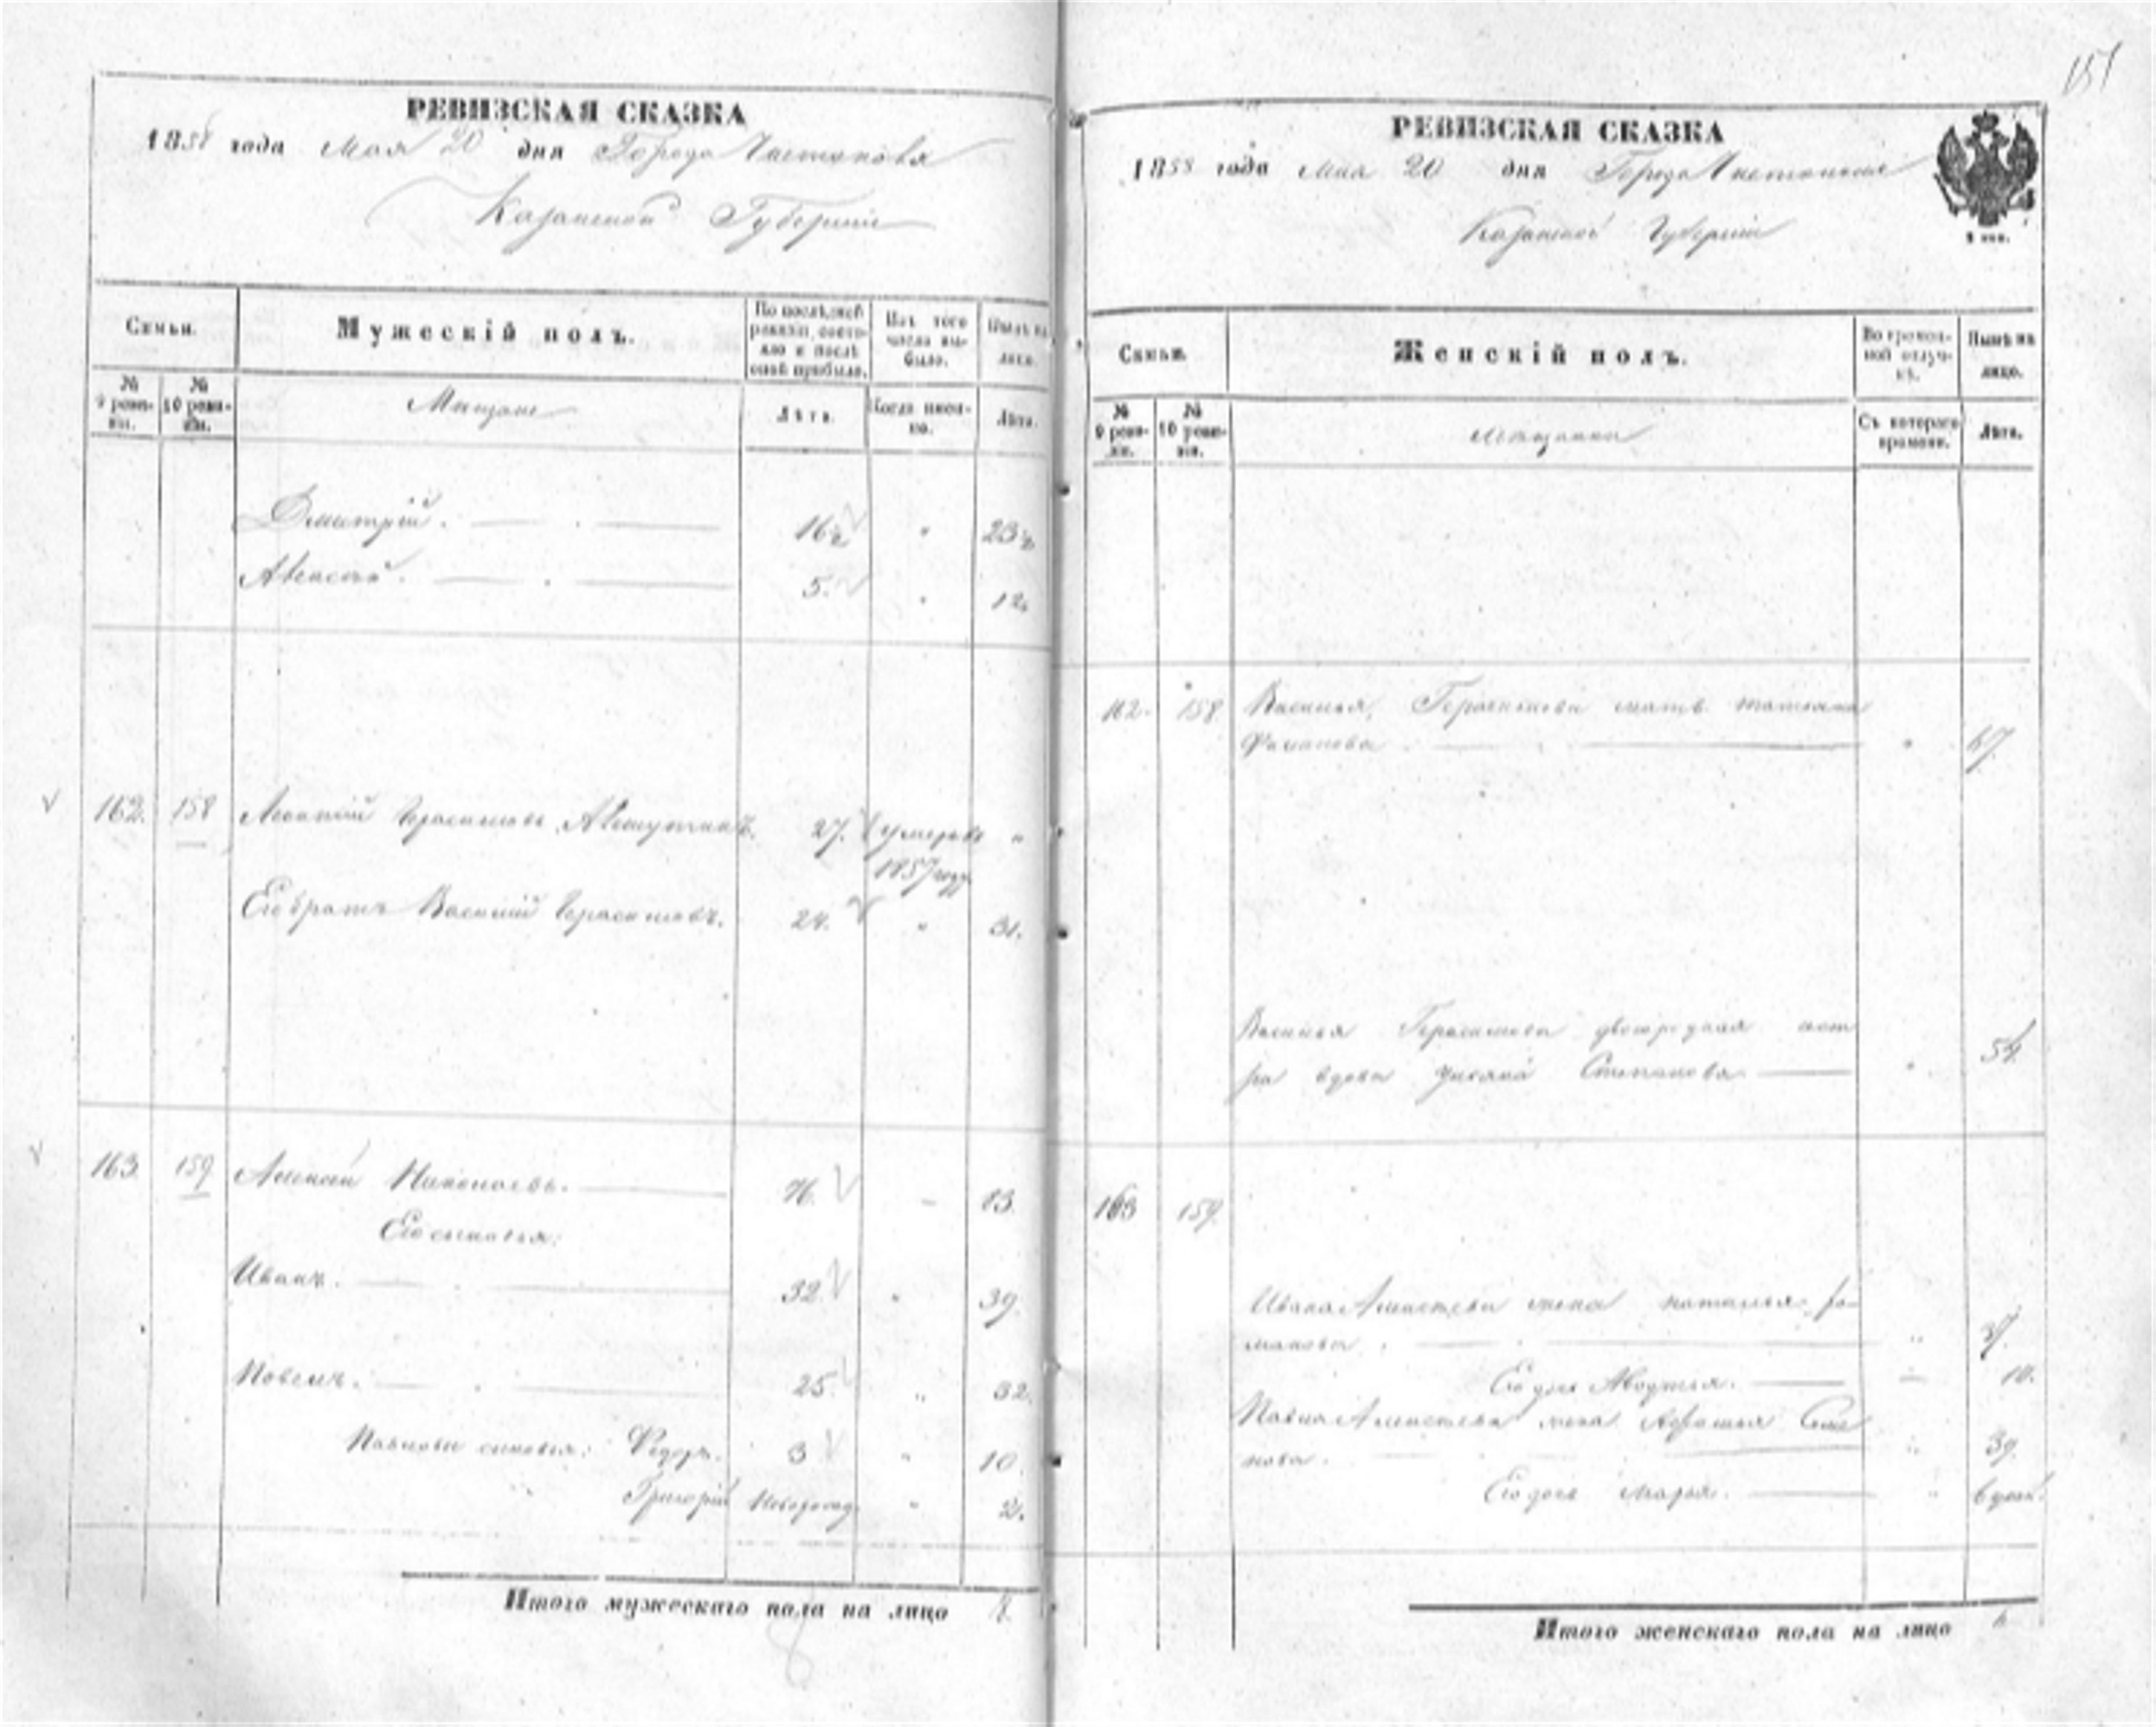 РЕВИЗСКАЯ СКАЗКА
1858 года Мая 20 дня Города Чистополя
Казанской Губернии
Семьи.
Мужескій полъ.
По послѣдней ревизіи состояло и послѣ оной прибыло.
Изъ того числа выбыло.
Нынѣ на лицо.
№ 9 ревизіи.
№ 10 ревизіи.
Мещане
Лѣта.
Когда именно.
Лѣта.
Дмитрій. 16½ " 23½
Алексѣй. 5. " 12.
162. 158 Герасимовъ 27. умеръ въ "
1857 году
Его братъ Василій Герасимовъ. 24. " 31.
163. 159 Алексѣй Николаевъ. 76. 83.
Его сыновья:
Иванъ. 32. " 39.
Павелъ. 25. " 32.
Павловы сыновья: Федоръ. 3 " 10.
Григорій Новорожд. " 2.
Итого мужескаго пола на лицо 8.
8
151
РЕВИЗСКАЯ СКАЗКА
1858 года Мая 20 дня Города Чистополя
Казанской Губерніи
Семьи.
Женскій полъ.
Во временной отлучкѣ.
Нынѣ на лицо.
№ 9 ревизіи.
№ 10 ревизіи.
Мещанки
Съ котораго времени.
Лѣта.
162. 158 Василья Герасимова мать Татьяна
" 67.
Василья Герасимова двоюродная сест
ра вдова Степанова " 54.
163 159.
Ивана Алексѣева жена Наталья Ро-
манова. " 37.
Его дочь Авдотья. 10.
Павла Алексѣева жена Семе
нова. " 39.
Его дочь Марья. "
Итого женскаго пола на лицо 6